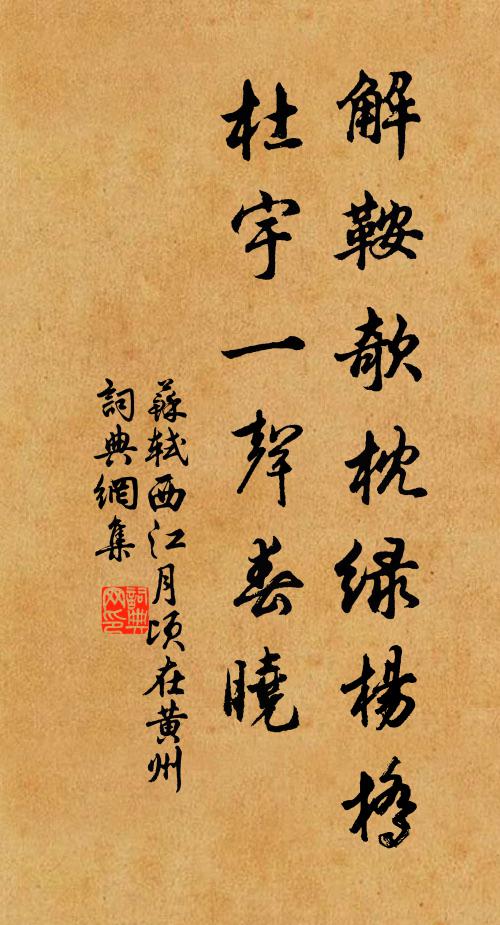 解鞍欹枕绿楊橋
杜宇一聲春曉
蘇軾西江月頃在黄州
詞典網集
詞典
网印